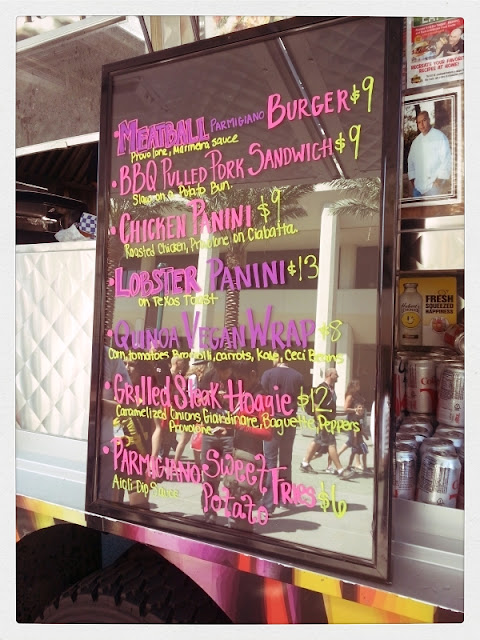 • MEATBALL PARMIGIANO BURGER $9
Provolone, Marinera sauce
• BBQ PULLED PORK SANDWICH $9
Slaw on a Potato Bun.
• CHICKEN PANINI $9
Roasted Chicken, Provolone on Ciabatta.
• LOBSTER PANINI $13
on Texas Toast
• QUINOA VEGAN WRAP $8
Corn, tomatoes, Broccili, carrots, Kale, Ceci Beans
• Grilled Steak Hoagie $12
Caramelized Onions, Giardinare, Baguette, Peppers
Provolone
• PARMIGIANO Sweet Potato FRIES $6
Aioli Dip Sauce
RECREATE YOUR FAVORITE
RECIPES AT HOME!
FRESH
SQUEEZED
HAPPINESS